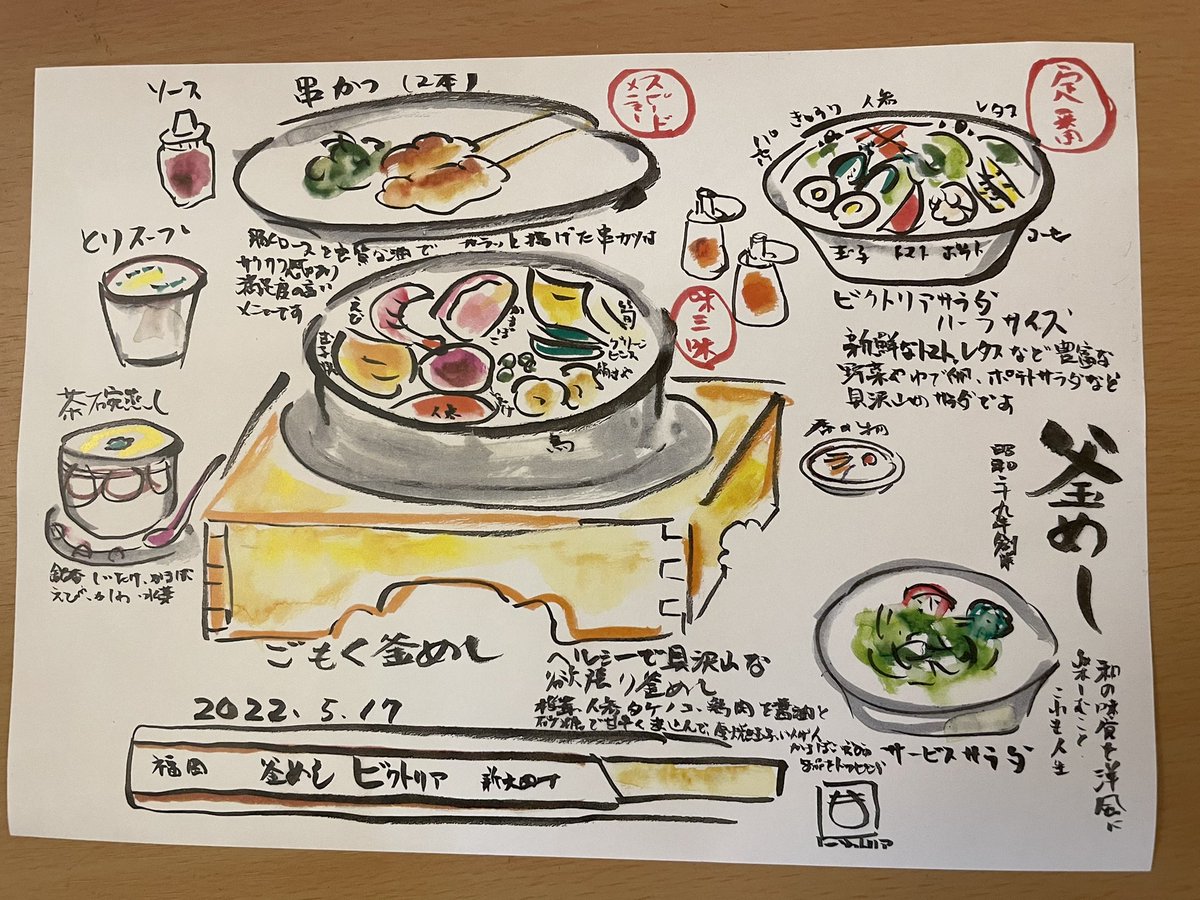 ソース
串かつ(2本)
スピード
メニュー
定番
とりスープ
豚ロースを良質な油で カラッと揚げた串カツは
サクサク感があり
満足度の高い
メニューです
きゅうり
人参
レタス
コーン
玉子 トマト ポテト
ビクトリアサラダ
ハーフサイズ
新鮮なトマト、レタスなど豊富な
野菜やゆで卵、ポテトサラダなど
具沢山のサラダです
味三味
えび
かまぼこ
筍
グリーン
ピンス
絹さや
人参
鳥
茶碗蒸し
銀杏 しいたけ、かまぼこ
えび、かしわ・水菜
香の物
釜めし
昭和二十九年創業
和の味覚を洋風に
楽しむこと
これも人生
ごもく釜めし
ヘルシーで具沢山な
欲張り釜めし
椎茸、人参、タケノコ、鶏肉を醤油と
砂糖で甘辛く煮込んで、
サービスサラダ
2022.5.17
福岡 釜めし ビクトリア 新天町